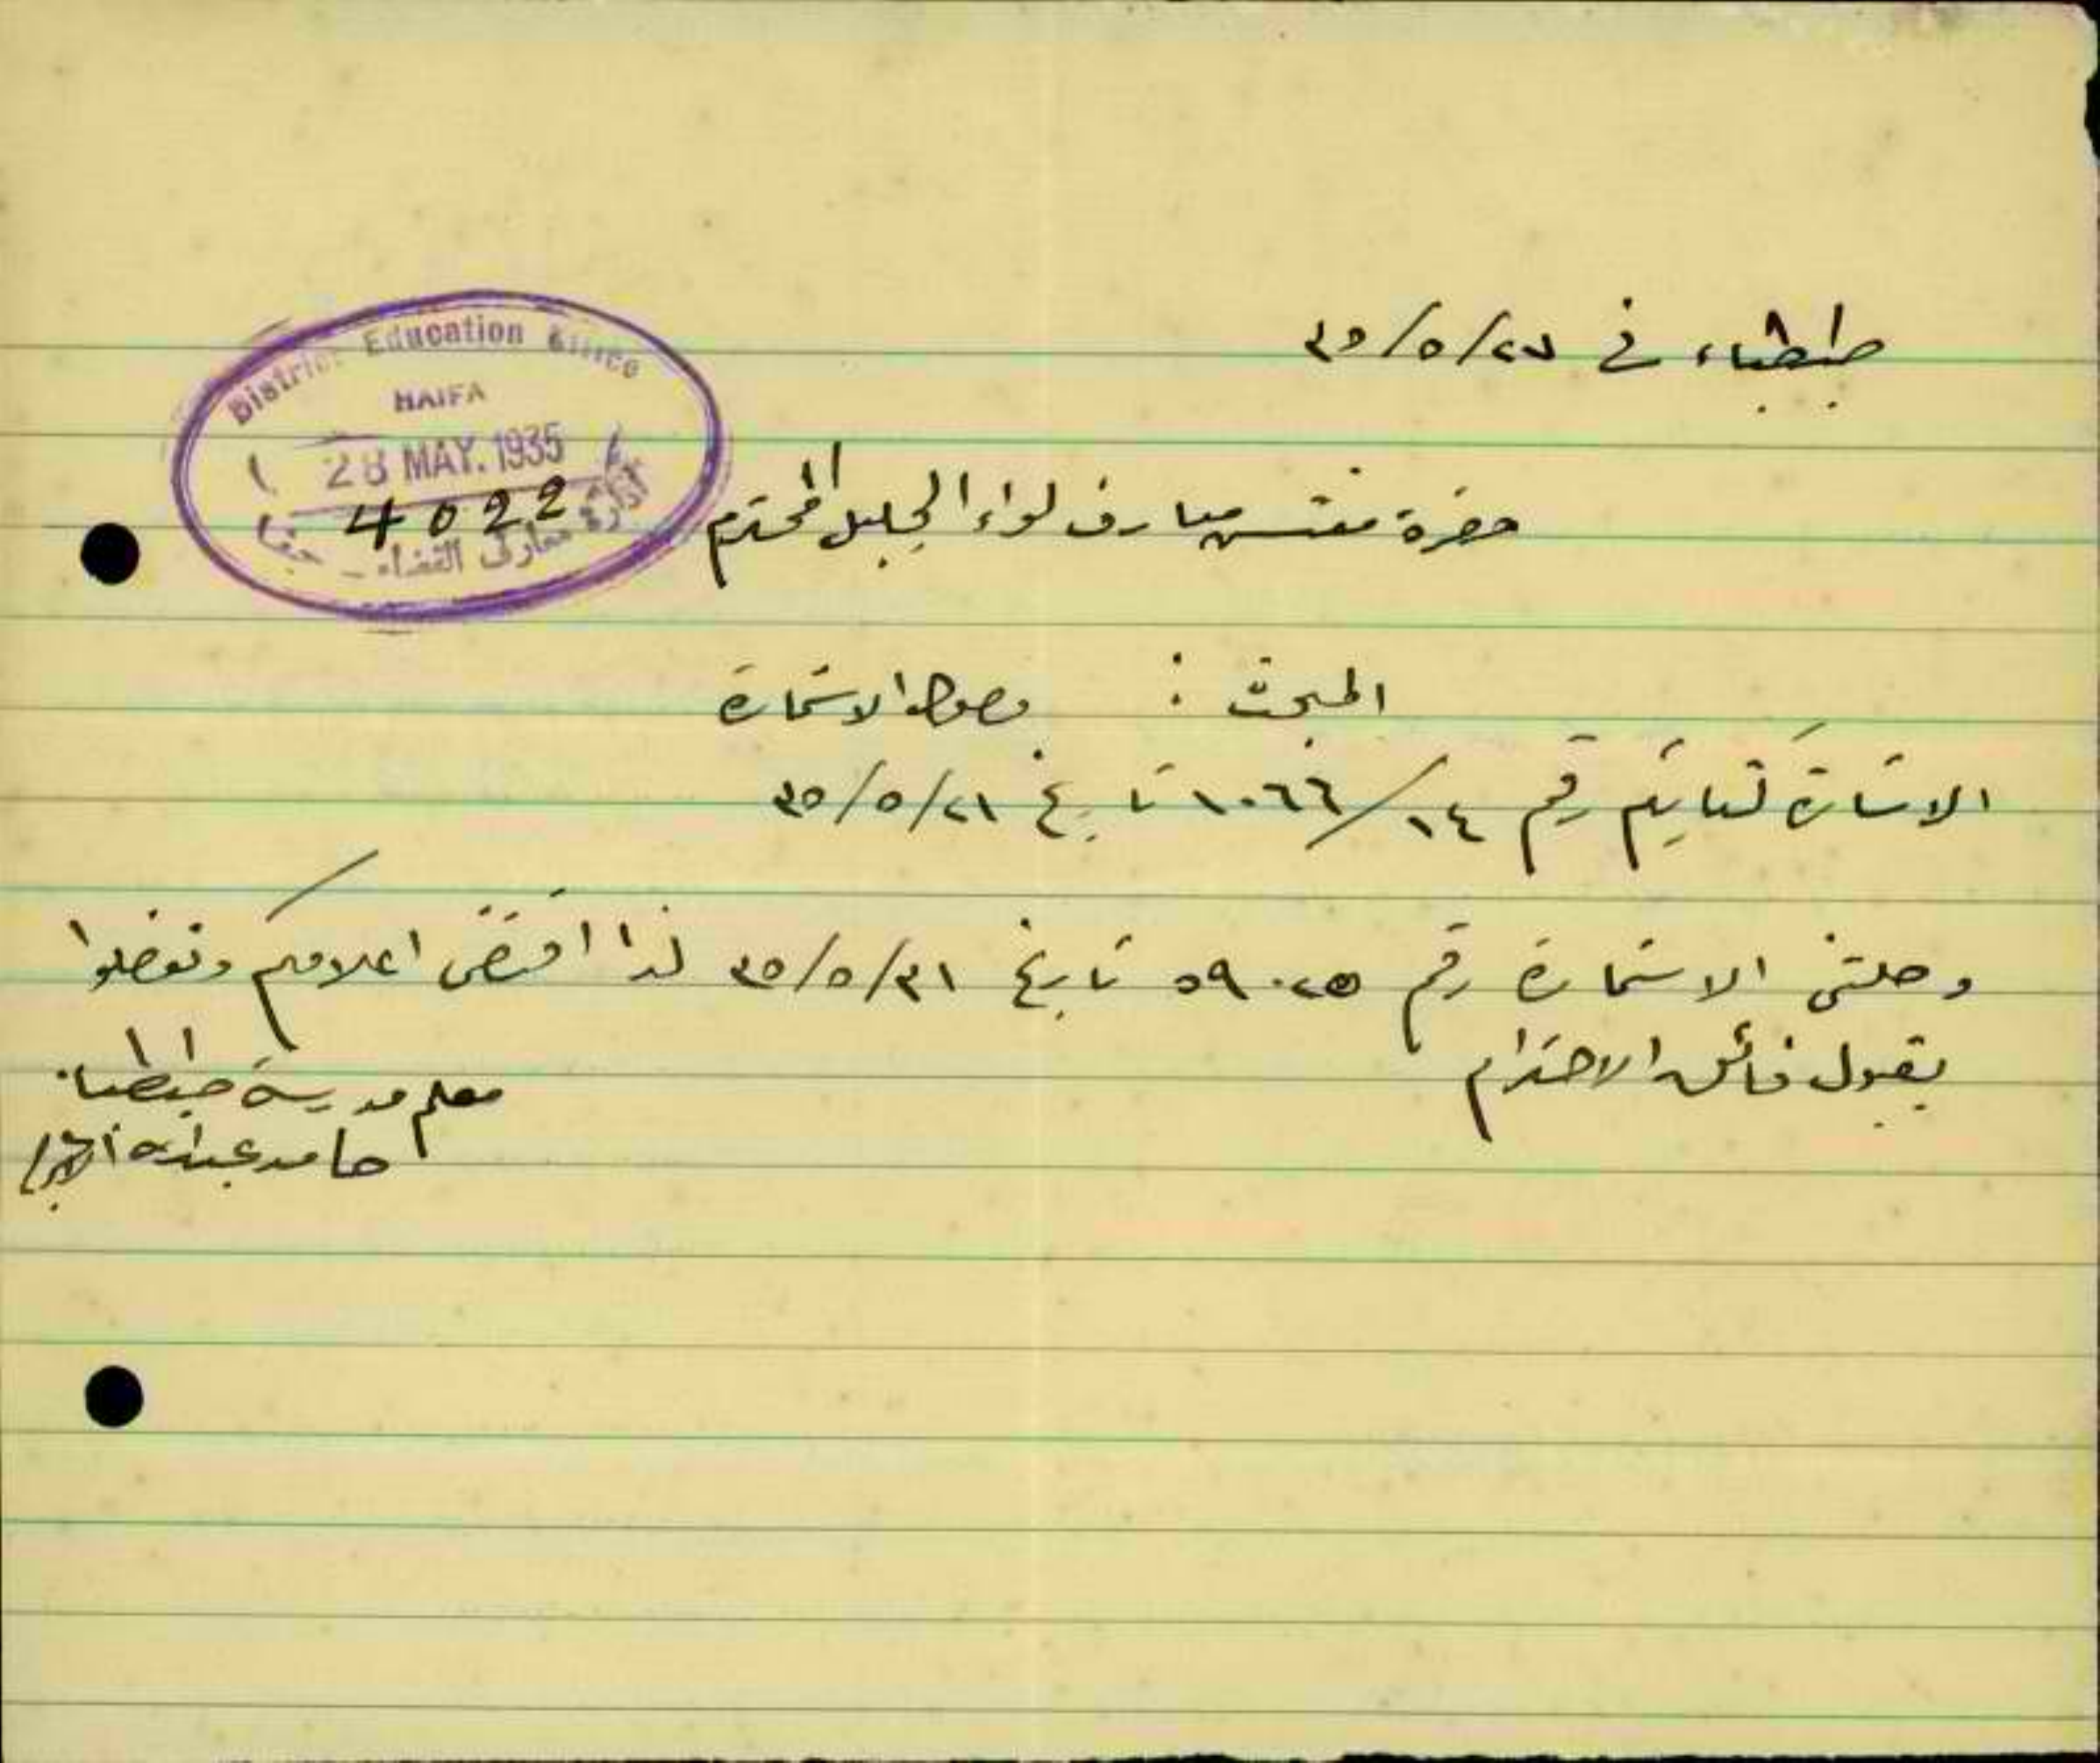 طبطباء في ٢٧/٥/٣٥
District Education Office
HAIFA
28 MAY. 1935
4022
ادارة معارف القضاء - حيفا
حضرة مفتش معارف لواء الجليل المحترم
المبحث : وصول الاستمارة
الاشارة كتابكم رقم ١٤/١٠٦٦ تاريخ ٢١/٥/٣٥
وصلتني الاستمارة رقم ٥٩٠٢٥ تاريخ ٣١/٥/٣٥ لذا اقتضى اعلامكم وتفضلوا
بقبول فائق الاحترام
معلم مدرسة طبطبا
حامد عبدالله